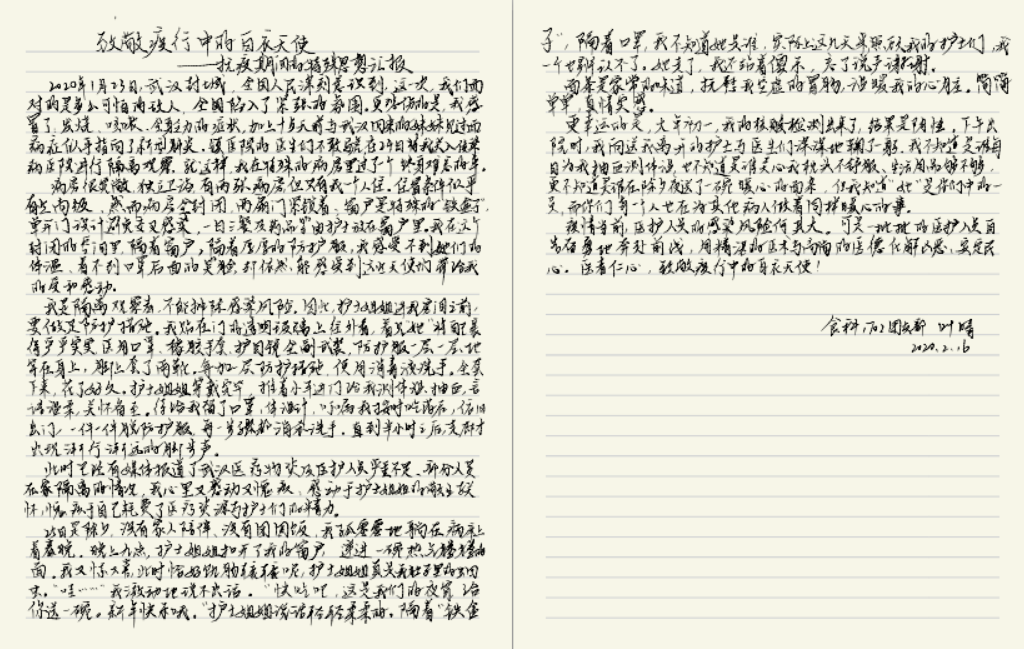 致敬疫行中的白衣天使
——抗疫期间的特殊思想汇报
2020年1月23日,武汉封城,全国人民深刻意识到,这一次,我们面
对的是多么可怕的敌人,全国陷入了紧张的氛围。更恐怖的是,我感
冒了,发烧、咳嗽、全身乏力的症状,加上十多天前与武汉回来的妹妹见过面
病症似乎指向了新型肺炎。镇医院的医生们不敢怠慢在24日将我送入佳木
病医院进行隔离观察。就这样,我在特殊的病房里过了一个终身难忘的年。
病房很宽敞,独立卫浴,有两张病床但只有我一个人住。住宿条件似乎
有些高级,然而病房全封闭,两扇门紧锁着,窗户是特殊的"铁盒子",
单开门设计避免交叉感染,一日三餐及药品皆由护士放在窗户里。我在这个
封闭的房间里,隔着窗户,隔着厚厚的防护服,我感受不到她们的
体温,看不到口罩后面的笑脸,却依然能感受到这些天使们带给我
的爱和感动。
我是隔离观察者,不能排除感染风险,因此,护士姐姐进我房间之前,
要做足防护措施。我贴在门的透明玻璃上往外看,看见她"装配"着
得严严实实,医用口罩、橡胶手套、护目镜全副武装,防护服一层一层地
穿在身上,脚上套了两靴。每加一层防护措施,便用消毒液洗手。全套
下来,花了好久。护士姐姐穿戴完毕,推着小车进门给我测体温、抽血,言
语温柔,关怀备至。待给我留了口罩,体温计,叮嘱我按时吃药后,依旧
出门,一件一件脱防护服,每一步骤都消杀洗手。直到半小时之后,走廊才
出现渐行渐远的脚步声。
此时已经有媒体报道了武汉医疗物资及医护人员严重不足、部分人员
在家隔离的情况,我心里又感动又愧疚,感动于护士姐姐的敬业关
怀,愧疚于自己耗费了医疗资源与护士们的精力。
25日是除夕,没有家人陪伴、没有团圆饭,我孤零零地躺在病床上
看春晚。晚上九点,护士姐姐扣开了我的窗户,递进一碗热气腾腾的
面。我又惊又喜,此时恰好饥肠辘辘呢,护士姐姐真是我肚子里的蛔
虫。"哇……"我激动地说不出话。"快吃吧,这是我们的夜宵,给
你送一碗。新年快乐哦。"护士姐姐说话轻轻柔柔的,隔着"铁盒
子",隔着口罩,我不知道她是谁,实际上这几天来照顾我的护士们,我
一个也辨认不了。她走了,我还站着傻乐,忘了说声谢谢。
面条是家常的味道,抚慰我空虚的胃肠,温暖我的心房。简简
单单,真情实感。
更幸运的是,大年初一,我的核酸检测出来了,结果是阴性。下午出
院时,我向送我离开的护士与医生们深深地鞠了一躬。我不知道是谁每
日为我抽血测体温,也不知道是谁关心我枕头不舒服、生活用品够不够,
更不知道是谁在除夕夜送了一碗暖心的面来,但我知道"她"是你们中的一
员,而你们每一个人也在为其他病人做着同样暖心的事。
疫情当前,医护人员的感染风险何其大。可是一批批的医护人员自
告奋勇地奔赴前线,用精湛的医术与高尚的医德化解凶恶、安定民
心。医者仁心,致敬疫行中的白衣天使!
食科1702团支部 叶晴
2020.2.16